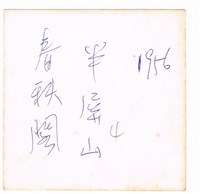 春秋閣
半屏山 4
1956